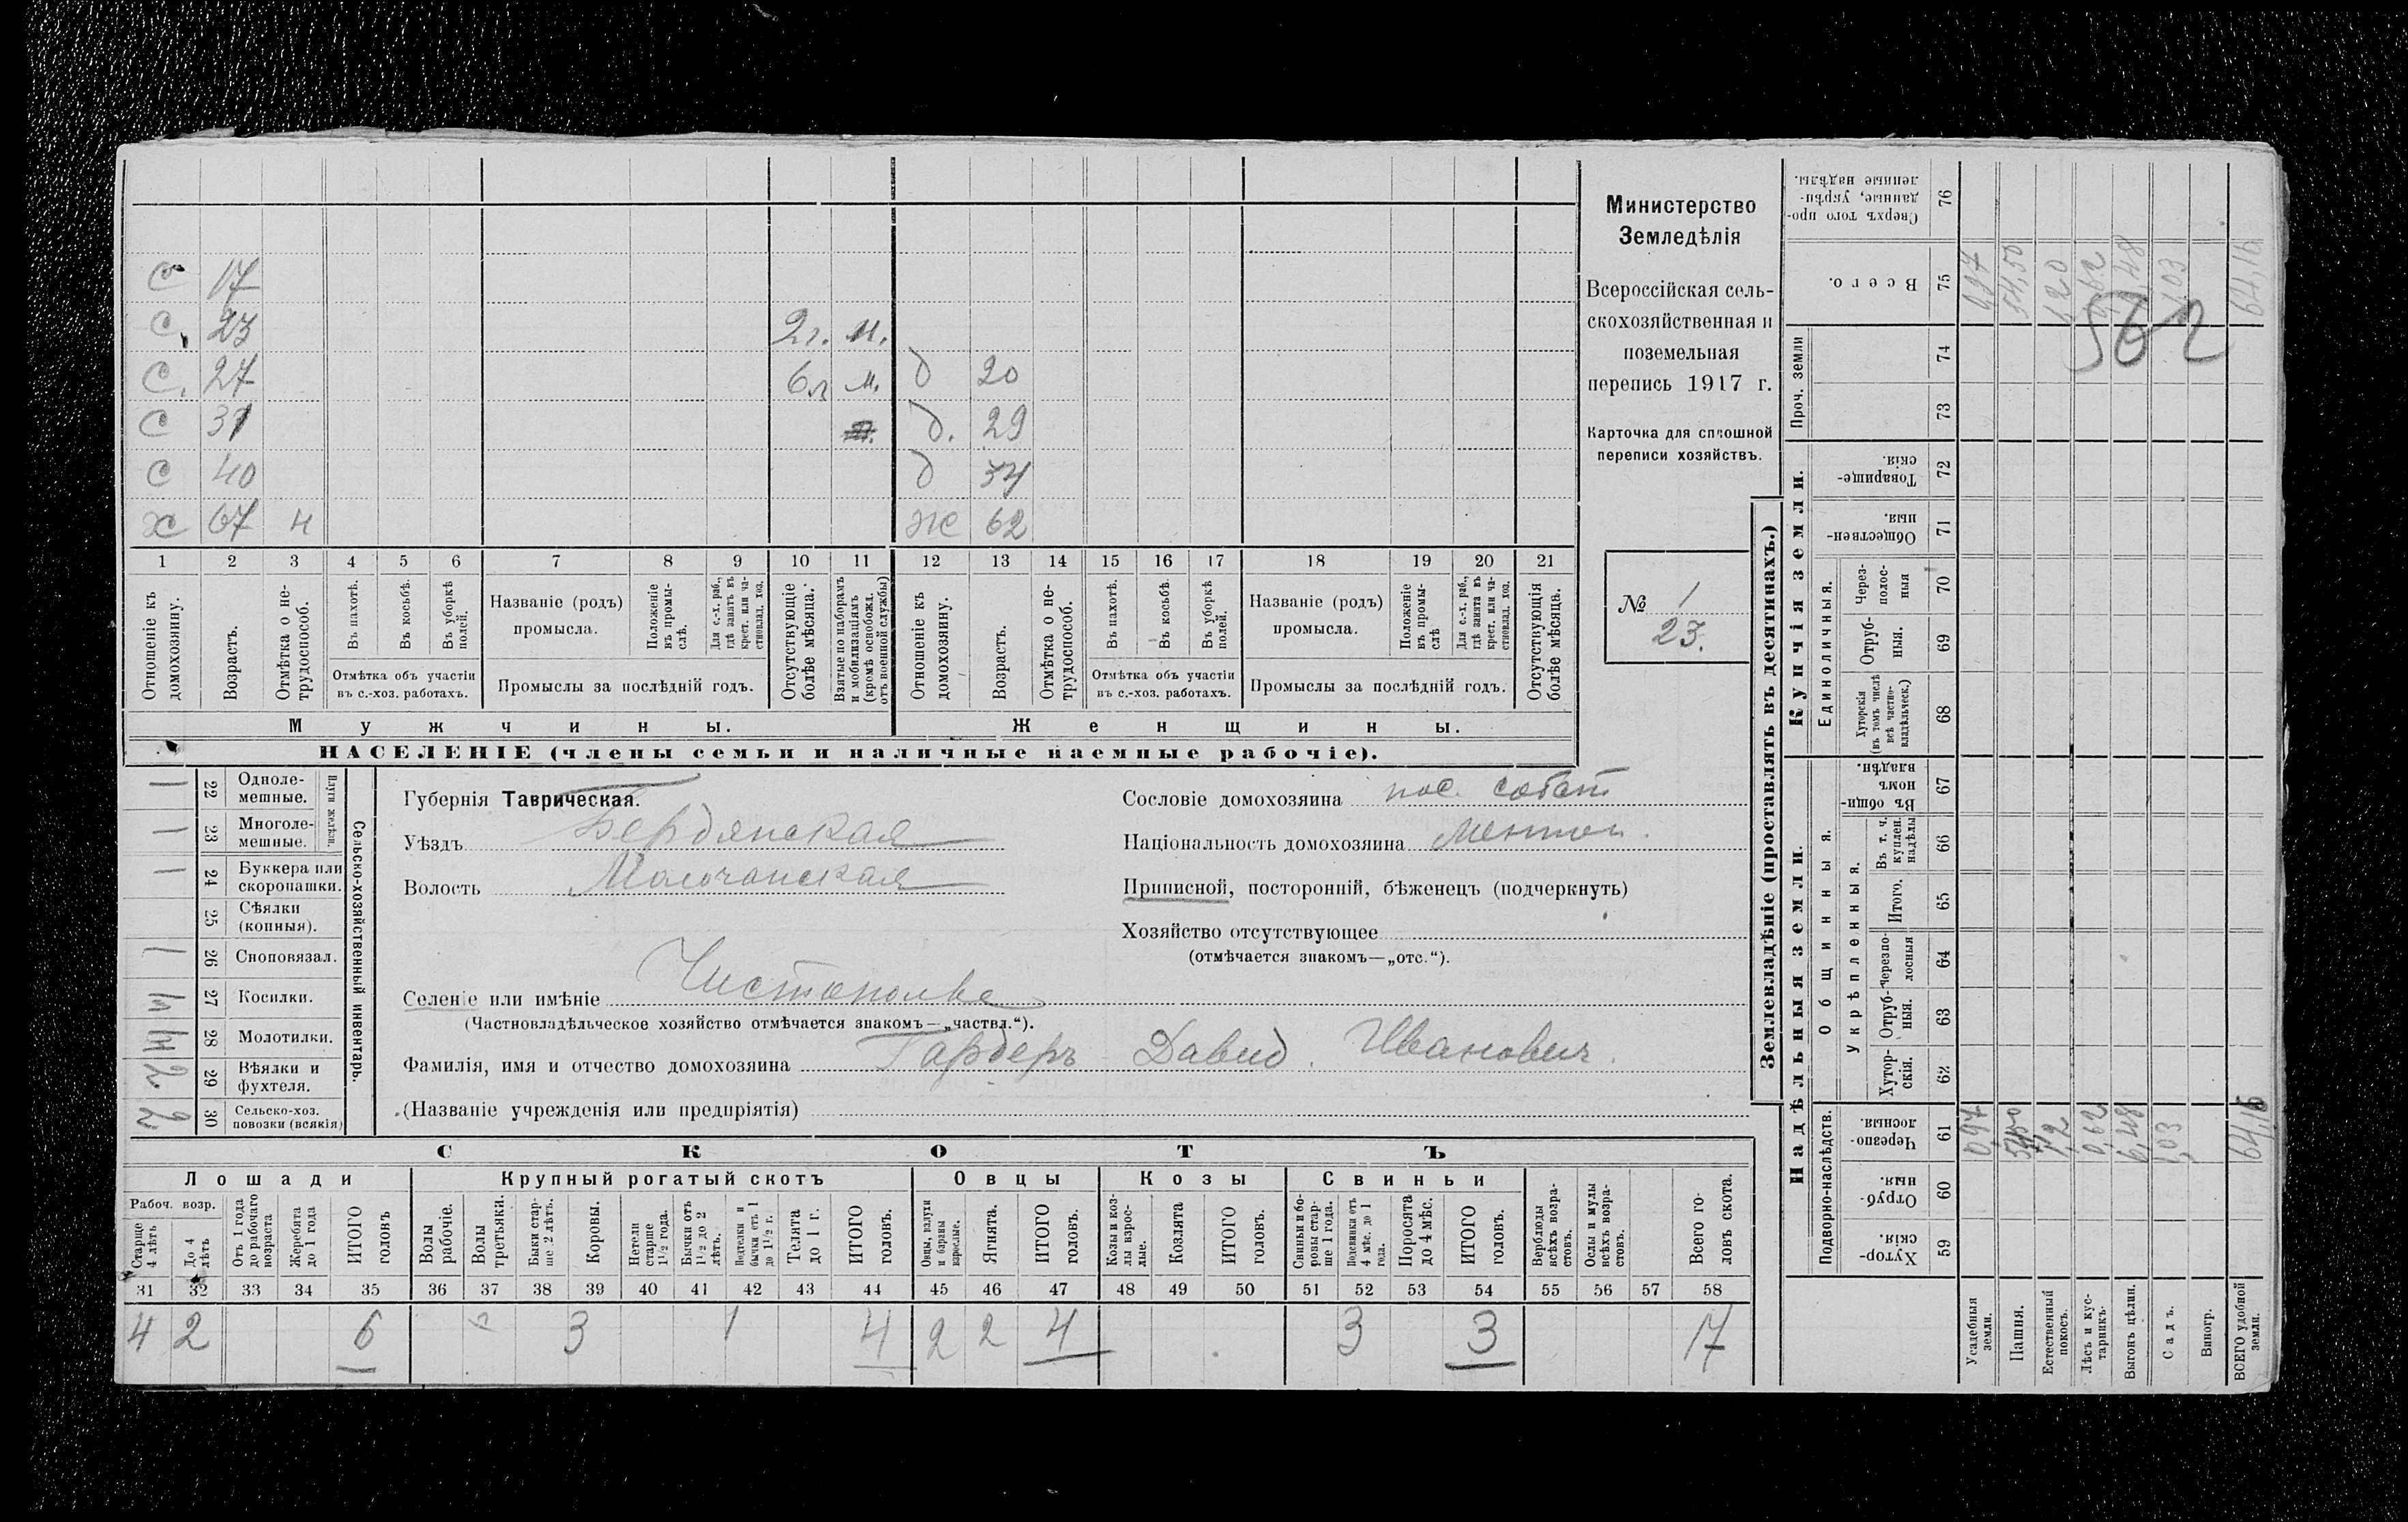 Министерство
Земледѣлія
Всероссійская сель-
скохозяйственная и
поземельная
перепись 1917 г.
Карточка для сплошной
переписи хозяйствъ.
№ 1
23.
С 17
С. 23 2г. м.
С. 27 6л м. д 20
С 31 д. 29
С 40 д 34
х 67 н ж 62
1 2 3 4 5 6 7 8 9 10 11 12 13 14 15 16 17 18 19 20 21
Отношеніе къ домохозяину.
Возрастъ.
Отмѣтка о не-трудоспособ.
Въ пахотѣ.
Въ косьбѣ.
Въ уборкѣ полей.
Отмѣтка объ участіи въ с.-хоз. работахъ.
Названіе (родъ) промысла.
Положеніе въ промы-слѣ.
Для с.-х. раб., гдѣ занятъ въ крест. или ча-стновлад. хоз.
Промыслы за послѣдній годъ.
Отсутствующіе болѣе мѣсяца.
Взятые по наборамъ и мобилизаціямъ (кромѣ освобожд. отъ военной службы)
Отношеніе къ домохозяину.
Возрастъ.
Отмѣтка о не-трудоспособ.
Въ пахотѣ.
Въ косьбѣ.
Въ уборкѣ полей.
Отмѣтка объ участіи въ с.-хоз. работахъ.
Названіе (родъ) промысла.
Положеніе въ промы-слѣ
Для с.-х. раб., гдѣ занята въ крест. или ча-стновлад. хоз.
Промыслы за послѣдній годъ.
Отсутствующія болѣе мѣсяца.
Мужчины. Женщины.
НАСЕЛЕНІЕ (члены семьи и наличные наемные рабочіе).
Сельско-хозяйственный инвентарь.
Плуги желѣзн.
1 22 Одноле-мешные.
1 23 Многоле-мешные.
1 24 Буккера или скоропашки.
25 Сѣялки (конныя).
1 26 Сноповязал.
27 Косилки.
28 Молотилки.
2 29 Вѣялки и фухтеля.
30 Сельско-хоз. повозки (всякія)
Губернія Таврическая.
Уѣздъ Бердянская
Волость Молочанская
Селеніе или имѣніе Чистополье
(Частновладѣльческое хозяйство отмѣчается знакомъ—„частвл.“).
Фамилія, имя и отчество домохозяина Гардеръ Давид Иванович.
(Названіе учрежденія или предпріятія)
Сословіе домохозяина пос. собств
Національность домохозяина
Приписной, посторонній, бѣженецъ (подчеркнуть)
Хозяйство отсутствующее
(отмѣчается знакомъ—„отс.“).
СКОТЪ
Лошади Крупный рогатый скотъ Овцы Козы Свиньи
Рабоч. возр.
Старше 4 лѣтъ
До 4 лѣтъ
Отъ 1 года до рабочаго возраста
Жеребята до 1 года
ИТОГО головъ
Волы рабочіе.
Волы третьяки.
Быки стар-ше 2 лѣтъ.
Коровы.
Нетели старше 1½ года.
Бычки отъ 1½ до 2 лѣтъ.
бычки отъ 1 до 1½ г.
Телята до 1 г.
ИТОГО головъ.
Овцы, валухи и бараны взрослые.
Ягнята.
ИТОГО головъ.
Козы и коз-лы взрос-лые.
Козлята
ИТОГО головъ.
Свиньи и бо-ровы стар-ше 1 года.
Подсвинки отъ 4 мѣс. до 1 года.
Поросята до 4 мѣс.
ИТОГО головъ.
Верблюды всѣхъ возра-стовъ.
Ослы и мулы всѣхъ возра-стовъ.
Всего го-ловъ скота.
31 32 33 34 35 36 37 38 39 40 41 42 43 44 45 46 47 48 49 50 51 52 53 54 55 56 57 58
4 2 6 3 1 4 2 2 4 3 3 17
Землевладѣніе (проставлять въ десятинахъ.)
Надѣльныя земли. Купчія земли.
Подворно-наслѣдств.
Общинныя.
Укрѣпленныя.
Единоличныя.
Проч. земли
Хутор-скія. 59
Отруб-ныя. 60
Черезпо-лосныя. 61
Хутор-скія. 62
Отруб-ныя. 63
Черезпо-лосныя 64
Итого. 65
Въ т. ч. куплен. надѣлы 66
Въ общи-номъ владѣн. 67
Хуторскія (въ томъ числѣ всѣ частно-владѣльческ.) 68
Отруб-ныя. 69
Через-полос-ныя 70
Обществен-ныя. 71
Товарище-скія. 72
73
74
Всего. 75
Сверхъ того про-данные, укрѣп-ленные надѣлы. 76
Усадебныя земли. 0,97 0,97
Пашня. 54,50
Естественный покосъ. 1,2 1,20
Лѣсъ и кус-тарникъ. 0,62 0,62
Выгонъ цѣлин. 6,48 6,48
Садъ. ,03 ,03
Виногр.
ВСЕГО удобной земли. 64,16 64,16
562